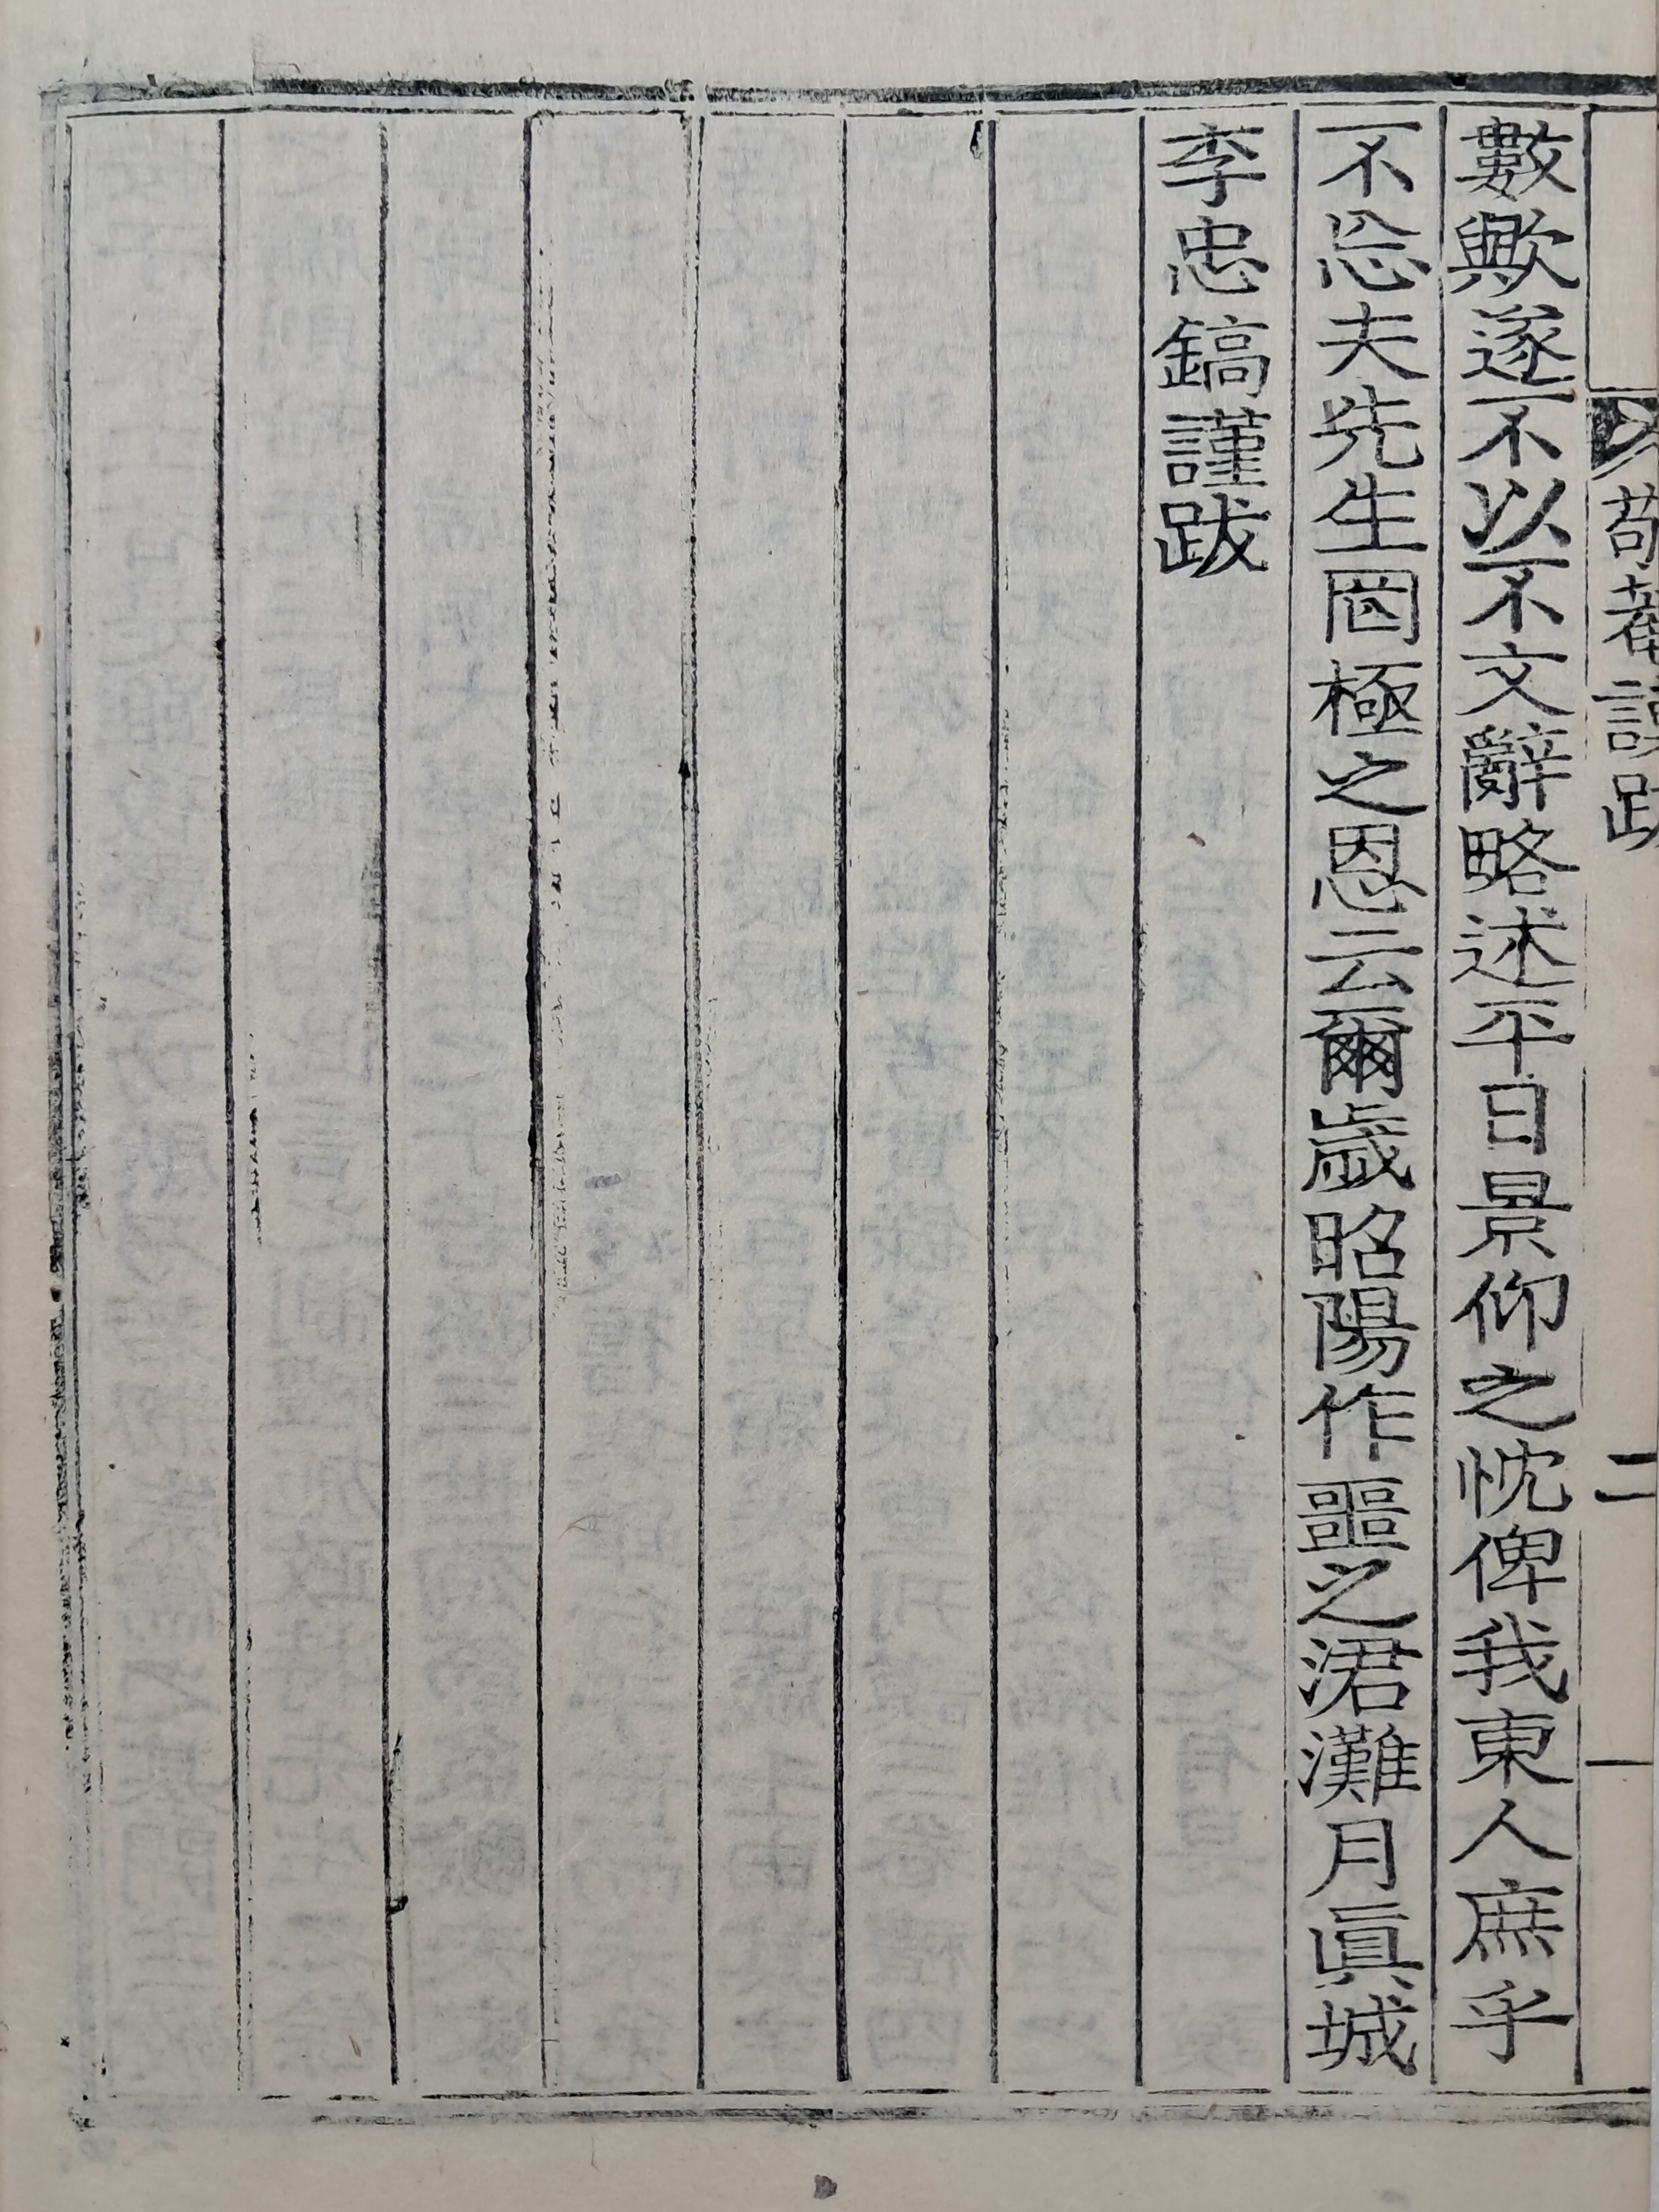 苟菴語跋
二
數歟遂不以不文辭略述平日景仰之忱俾我東人庶乎
不忘夫先生罔極之恩云爾歲昭陽作噩之涒灘月眞城
李忠鎬謹跋